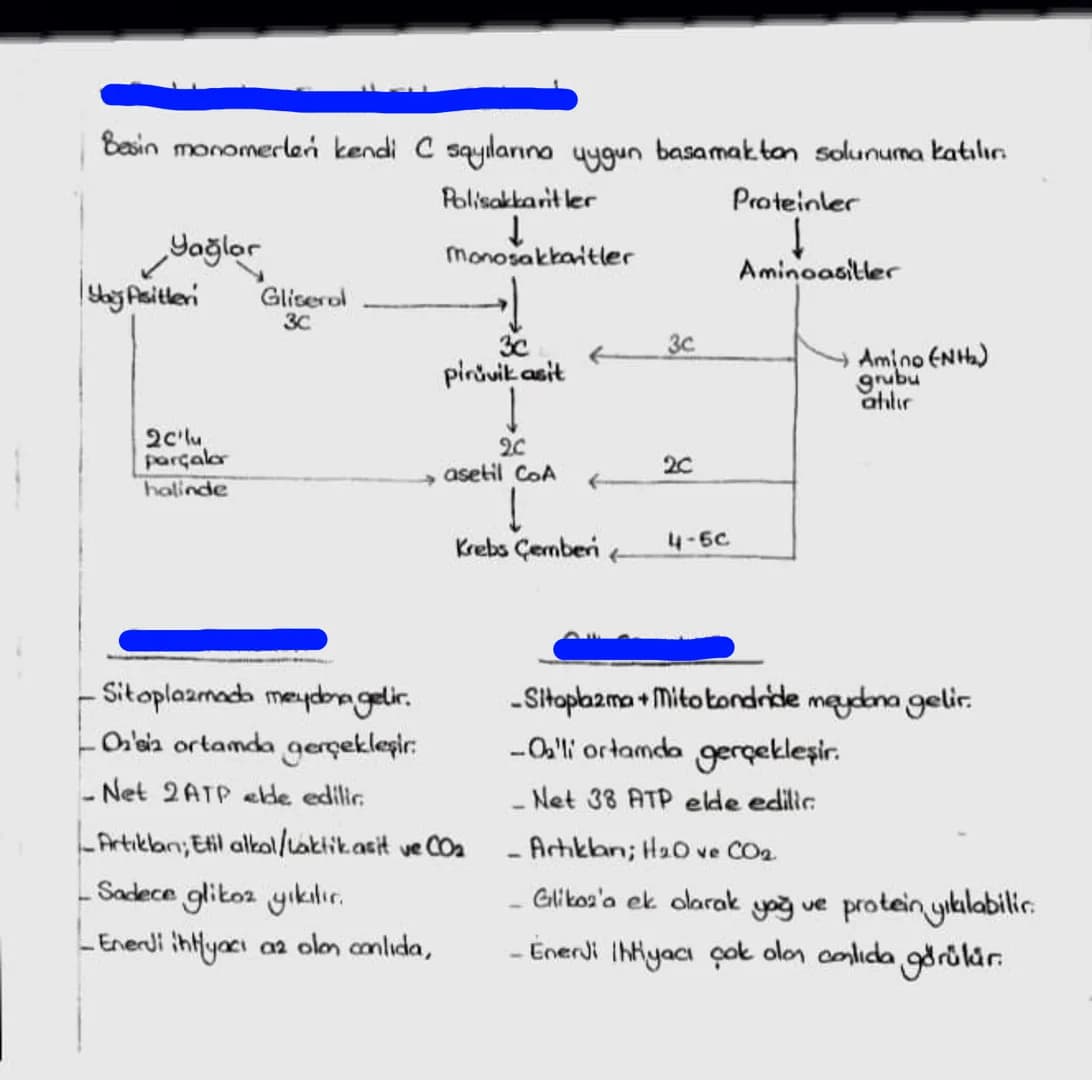 Besin monomerleri kendi C sayılarına uygun basamaktan solunuma katılır.
Polisakkaritler
Proteinler
Yağlar
Monosakkaritler
Aminoasitler
Yağ Asitleri
Gliserol
3C
3C
pirüvik asit
3C
Amino (NH₂)
grubu
atılır
2C'lu
parçalar
halinde
2C
asetil CoA
2C
Krebs Çemberi
4-5C
- Sitoplazmada meydana gelir.
- O₂'siz ortamda gerçekleşir.
- Net 2 ATP elde edilir.
- Artıkları; Etil alkol/Laktik asit ve CO₂
- Sadece glikoz yıkılır.
- Enerji ihtiyacı az olan canlıda,
- Sitoplazma + Mitokondride meydana gelir.
- O₂'li ortamda gerçekleşir.
- Net 38 ATP elde edilir.
- Artıkları; H₂O ve CO₂
- Glikoz'a ek olarak yağ ve protein yıkılabilir.
- Enerji ihtiyacı çok olan canlıda görülür.